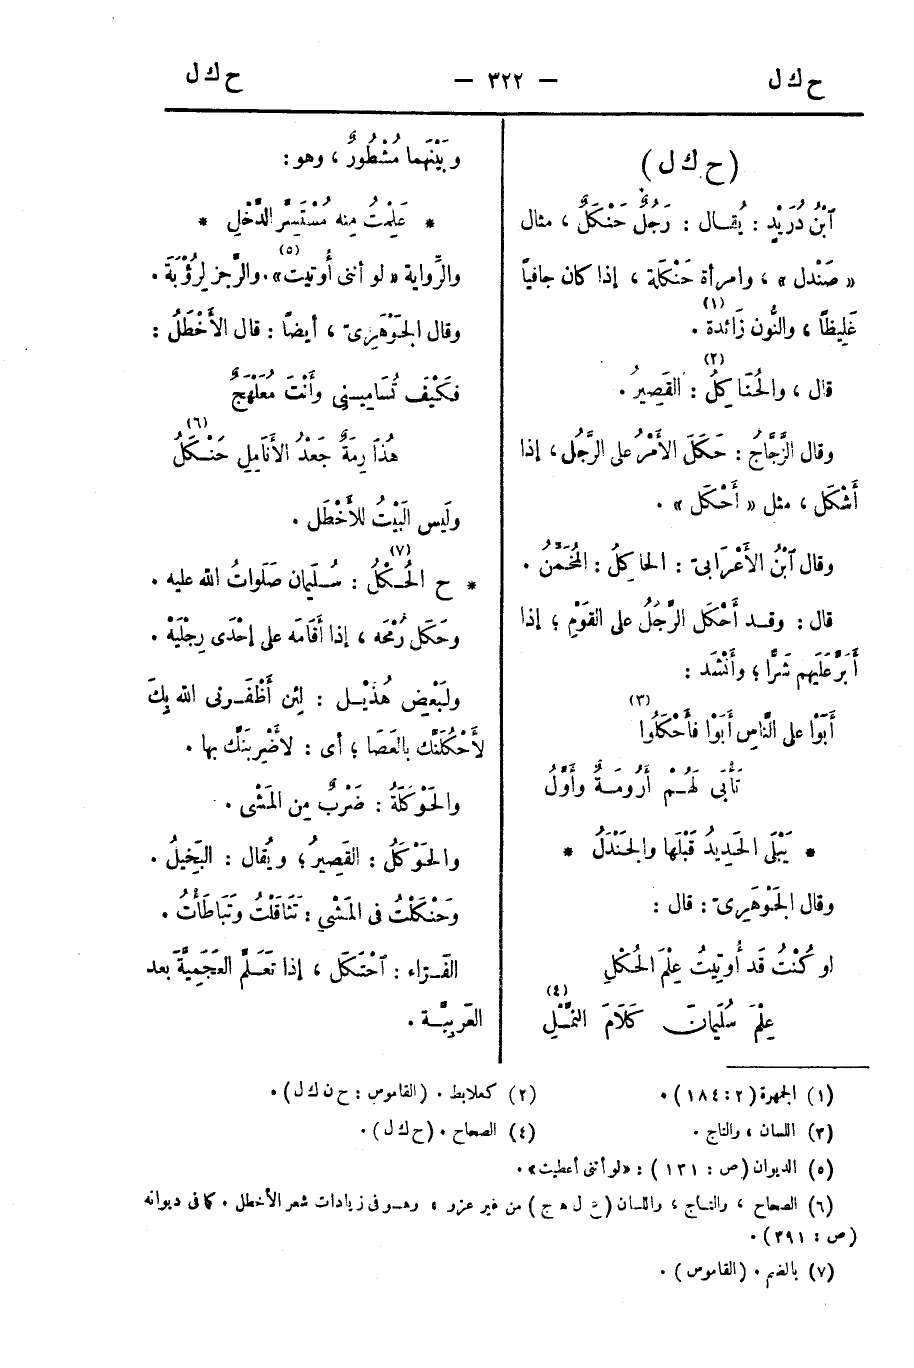 ح ك ل — ٣٢٢ — ح ك ل
(ح ك ل)
ٱبْنُ دُرَيْدٍ : يُقـال : رَجُلٌ حَنْكَلٌ ، مثال
« صَنْدل » ، وامرأة حَنْكلة ، إذا كان جافياً
غَلِيظًا ، والنُّون زَائدة . (١)
قال ، والحُنَاكِلُ (٢) : القَصِيرُ .
وقال الزَّجَّاجُ : حَكَلَ الأَمْرُ على الرَّجُل ، إذا
أَشْكَل ، مثل « أَحْكَل » .
وقال ٱبْنُ الأَعْرَابىّ : الحاكِلُ : المُخَمِّنُ .
قال : وقـد أَحْكَل الرَّجُلُ على القَوْمِ ؛ إذا
أَبَرَّ عَلَيهم شَرًّا ؛ وأَنْشَد :
أَبَوْا على النَّاسِ أَبَوْا فأَحْكَلُوا (٣)
تَأْبَى لَهُـم أَرُومَـةٌ وأَوَّلُ
* يَبْلَى الحَدِيدُ قَبْلَها والجَنْدَلُ *
وقال الجَوْهَرِىّ : قال :
او كُنْتُ قَد أُوتِيتُ عِلْمَ الحُكْلِ
عِلْمَ سُلَيمَانَ كَلَامَ النَّمْلِ (٤)
وبَيْنَهما مَشْطُورٌ ، وهو :
* عَلِمْتُ منه مُسْتَسَرَّ الدَّخْلِ *
والرِّواية « لو أننى أُوتيت » (٥) . والرَّجز لِرُؤْبَةَ .
وقال الجَوْهَرِىّ ، أيضًا : قال الأَخْطَلُ :
فكَيْفَ تُسَامِينِي وأَنْتَ مُعَلْهَجٌ
هُذَارِمَةٌ جَعْدُ الأَنَامِلِ حَنْـكَلُ (٦)
ولَيس البَيْتُ للأَخْطَل .
* ح الحُـكْلُ (٧) : سُـلَيمان صَلَواتُ الله عليه .
وحَكَل رُمْحَه ، إذا أَقَامَه على إحْدَى رِجْلَيْه .
ولبَعْضِ هُذَيْـل : لَئِن أَظْفَـرنى الله بِكَ
لأَحْكُلَنَّك بالعَصَا ؛ أى : لأَضْرِبَنَّك بها .
والحَوْكَلَةُ : ضَرْبٌ مِن المَشْى .
والحَوْكَلُ : القَصِيرُ ؛ ويُقال : البَخِيلُ .
وحَنْكَلْتُ فى المَشْي : تَثَاقَلْتُ وتَبَاطَأْتُ .
الفَـرّاء : ٱحْتَكَل ، إذا تَعَـلَّم العَجَمِيَّةَ بعد
العَربِيَّـة .
(١) الجمهرة (٢ : ١٨٤) . (٢) كعلابط . (القاموس : ح ن ك ل) .
(٣) اللسان ، والتاج . (٤) الصحاح . (ح ك ل) .
(٥) الديوان (ص : ١٣١) : « لو أننى أعطيت » .
(٦) الصحاح ، والتـاج ، واللسان (ع ل ه ج) من غير عزو ، وهـو فى زيادات شعر الأخطل . كما فى ديوانه
(ص : ٣٩١) .
(٧) بالضم . (القاموس) .